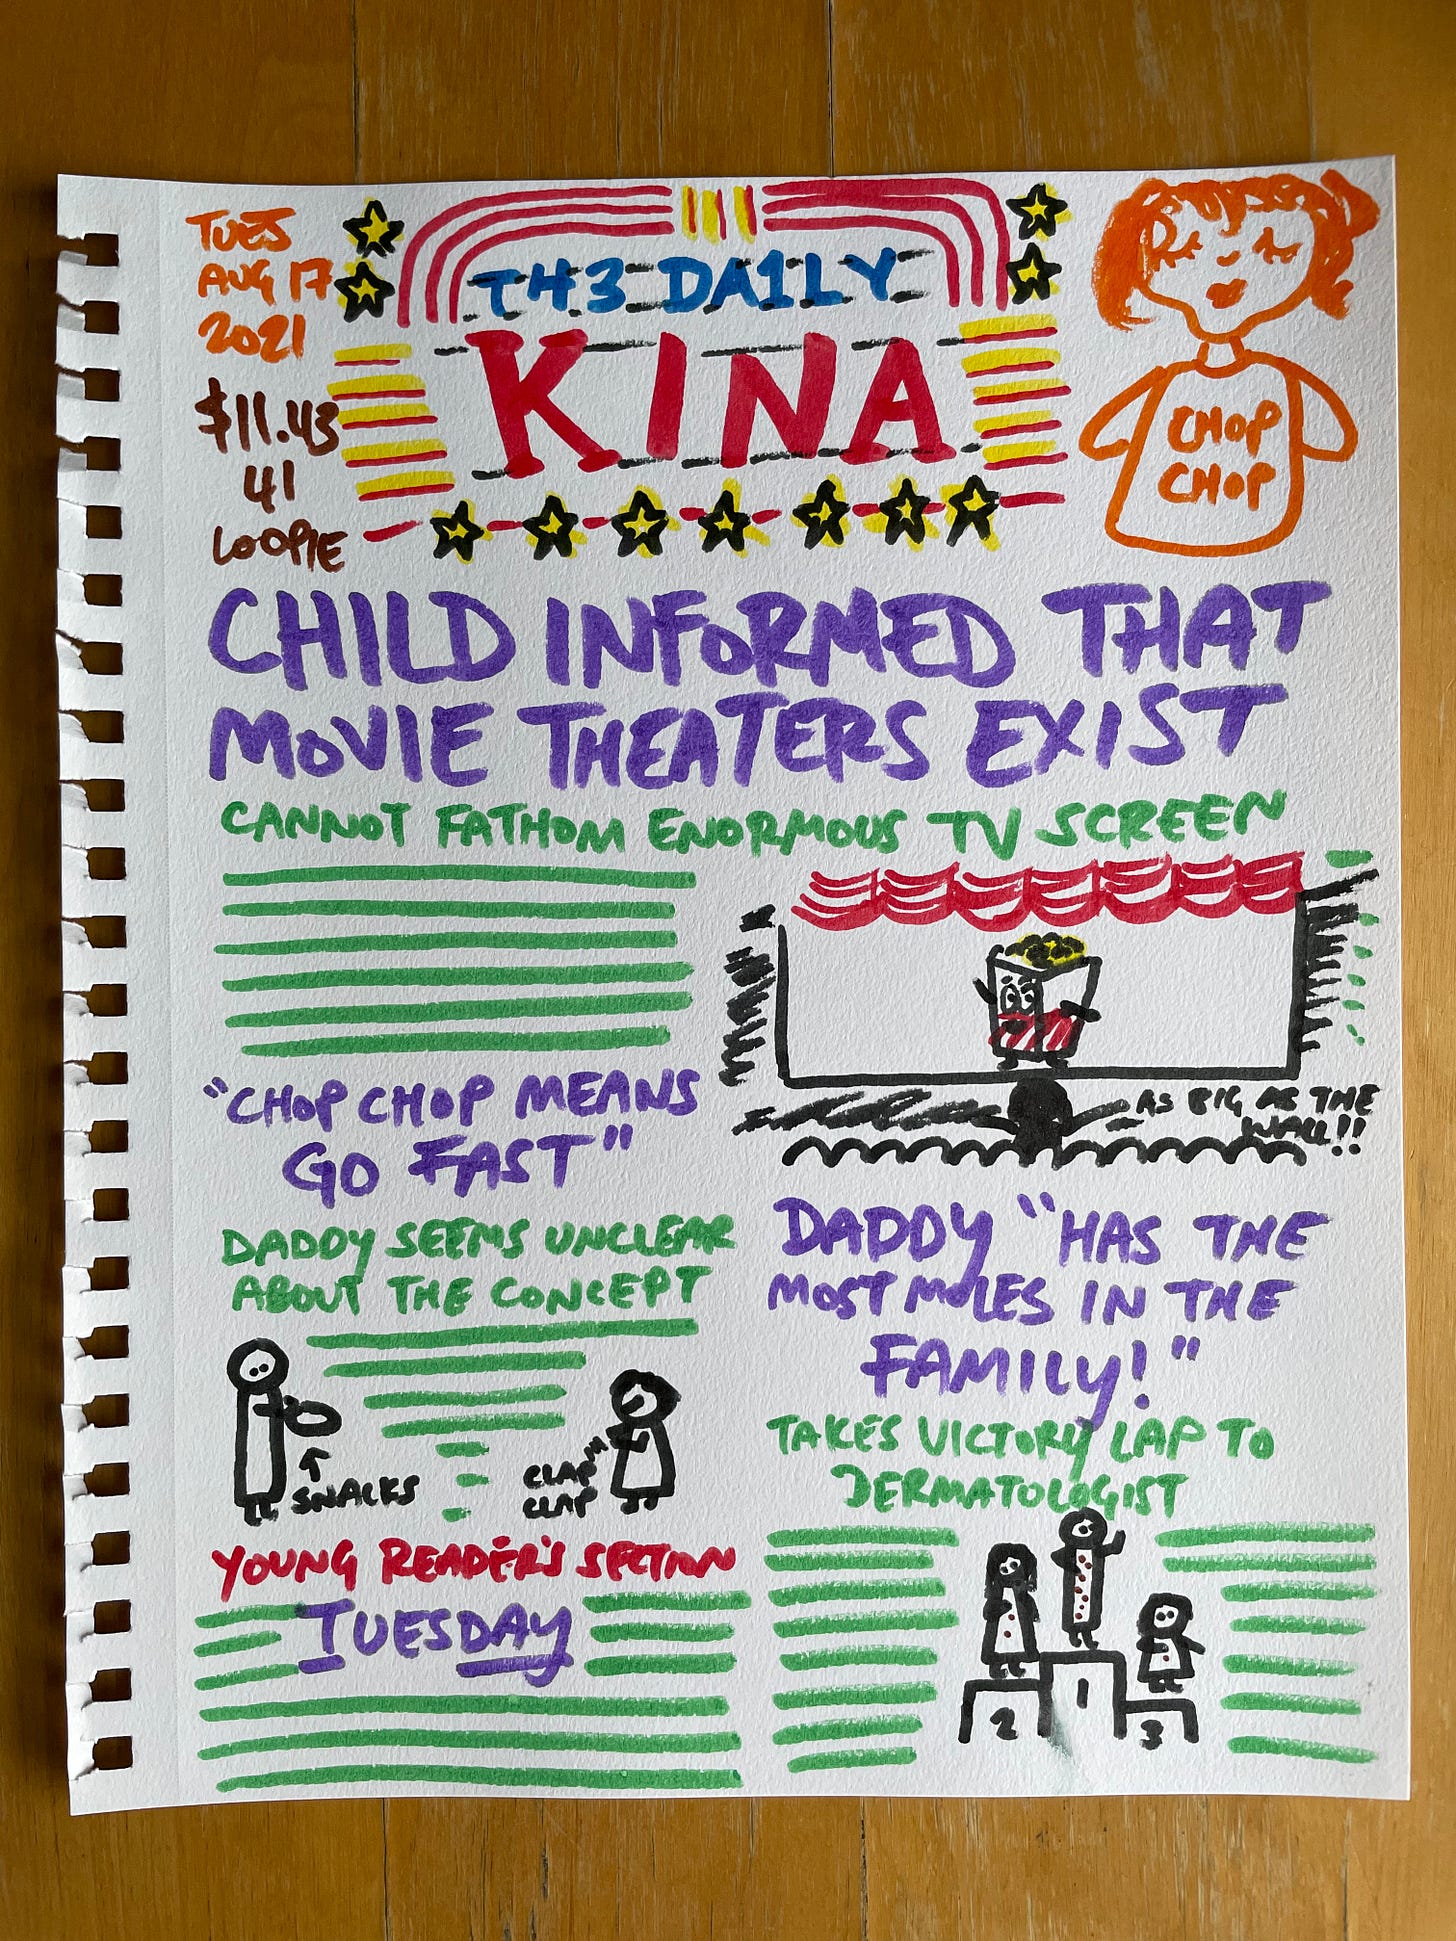 TUES
AUG 17
2021
$11.43
41
LOOPIE
T43 DA1LY
KINA
CHOP
CHOP
CHILD INFORMED THAT
MOVIE THEATERS EXIST
CANNOT FATHOM ENORMOUS TV SCREEN
AS BIG AS THE
WALL!!
"CHOP CHOP MEANS
GO FAST"
DADDY SEEMS UNCLEAR
ABOUT THE CONCEPT
SNACKS
CLAP
CLAP
YOUNG READER'S SECTION
TUESDAY
DADDY "HAS THE
MOST MOLES IN THE
FAMILY!"
TAKES VICTORY LAP TO
DERMATOLOGIST
2
1
3